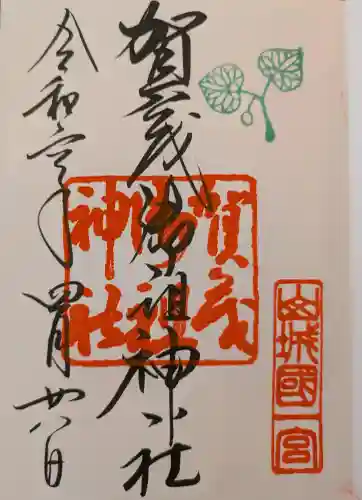 山城國一宮
賀茂御祖神社
賀茂御祖神社
令和三年四月廿八日